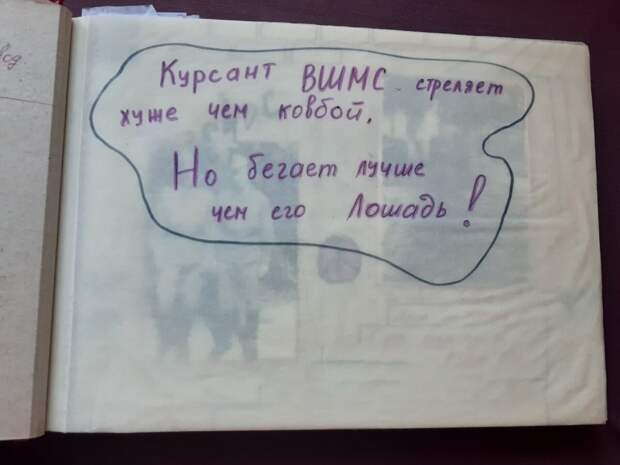 Курсант ВШМС стреляет
хуже чем ковбой.
Но бегает лучше
чем его Лошадь!